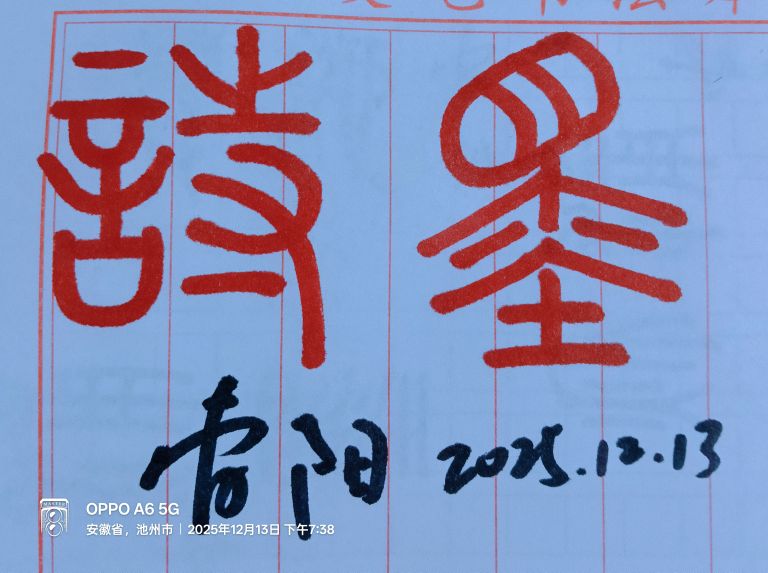 詩墨
青阳 2025.12.13
OPPO A6 5G
安徽省，池州市 | 2025年12月13日 下午7:38